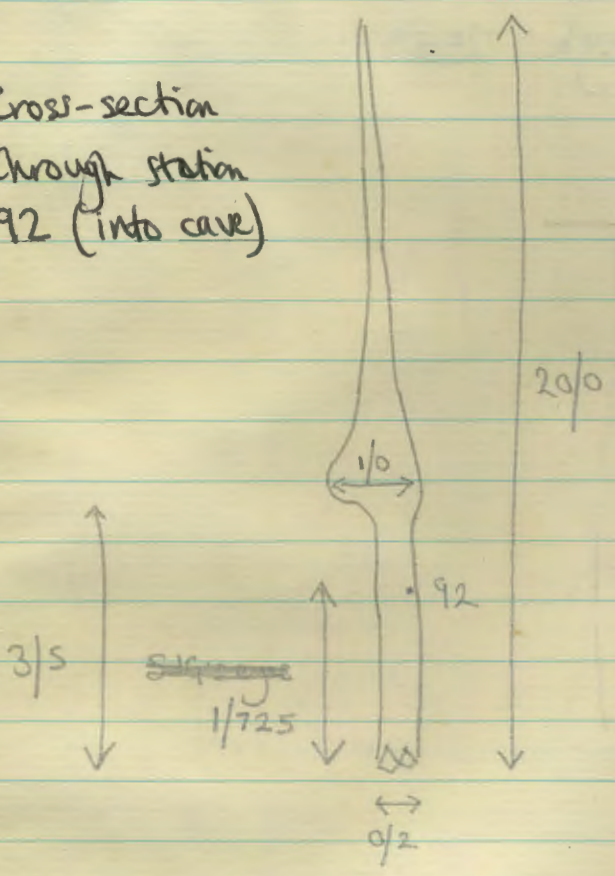 Cross-section
through station
92 (into cave)
20/0
1/0
92
3/5
1/725
0/2